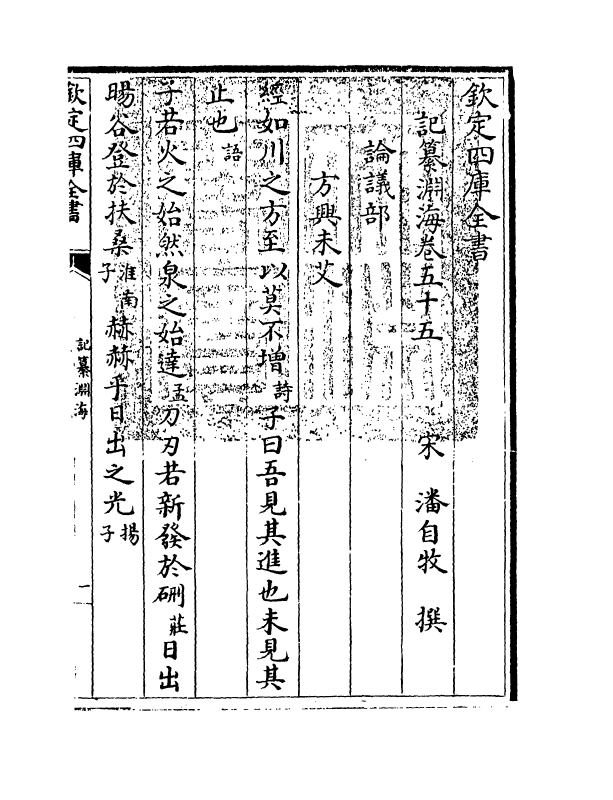 欽定四庫全書
記纂淵海卷五十五　宋　潘自牧　撰
論議部
方興未艾
經如川之方至以莫不增詩子曰吾見其進也未見其
止也語
子若火之始然泉之始達孟刀刃若新發於硎莊日出
暘谷登於扶桑淮南子赫赫乎日出之光揚子
欽定四庫全書
記纂淵海
一